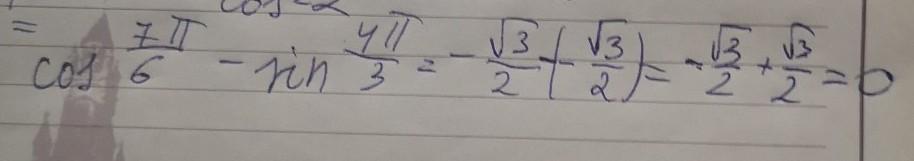 =
cos 7π/6 - sin 4π/3 = -√3/2 - (-√3/2) = -√3/2 + √3/2 = 0